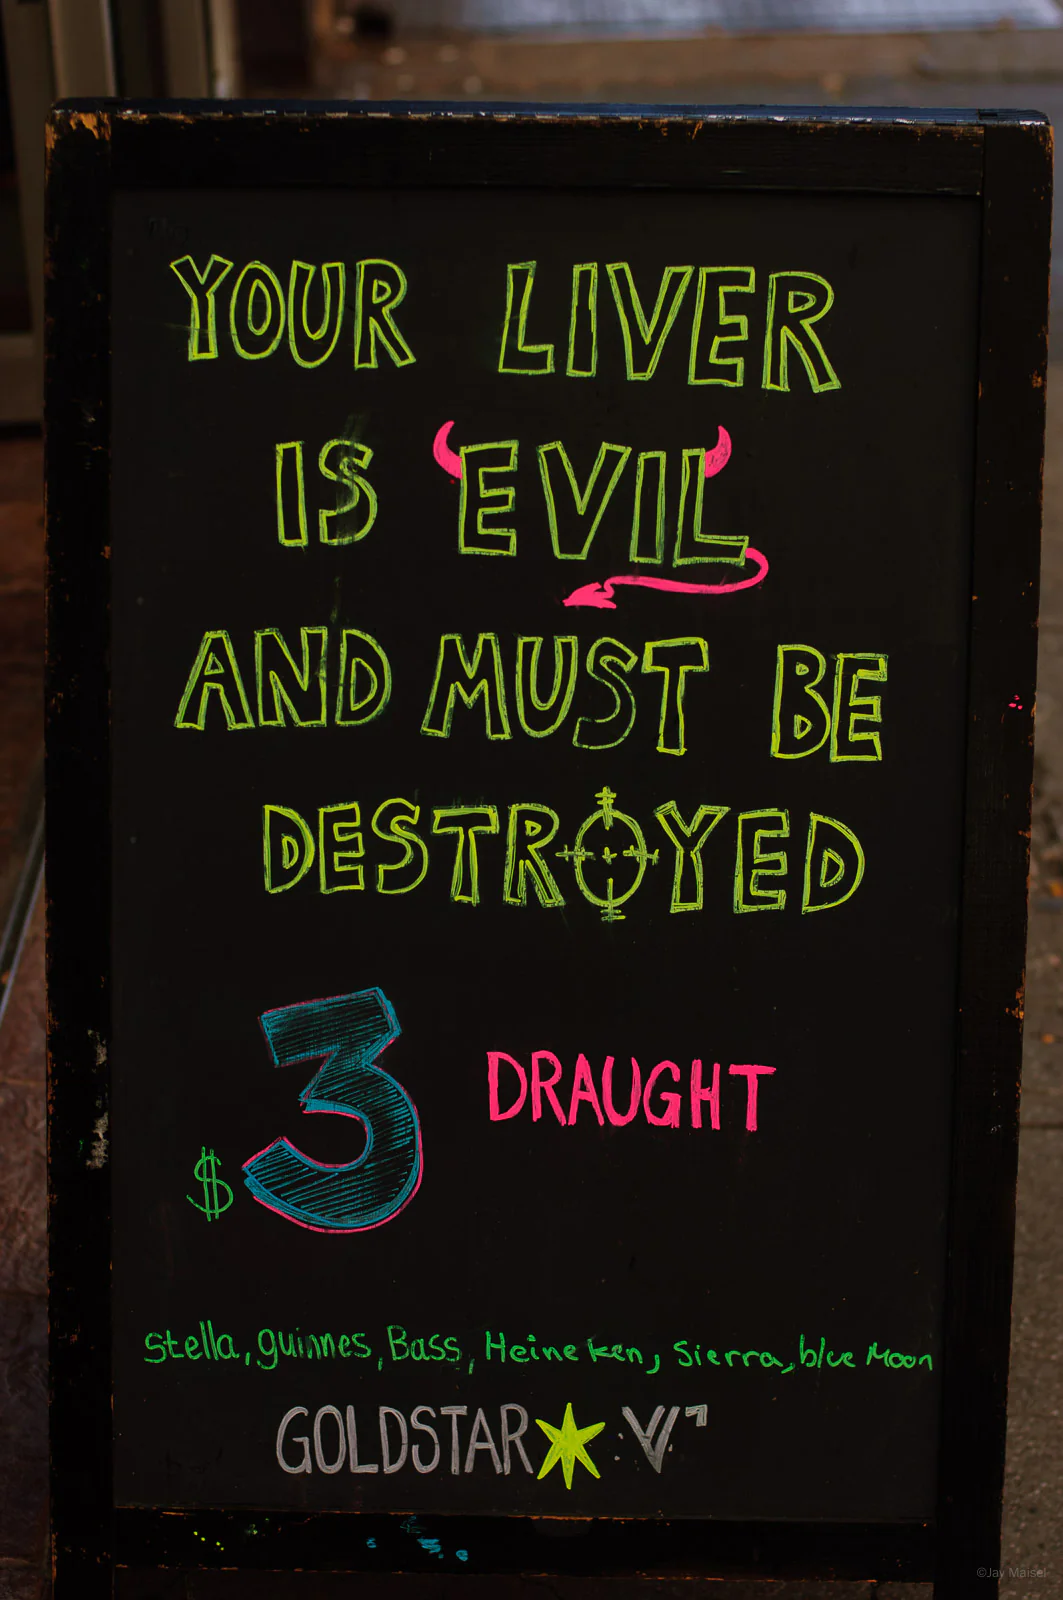 YOUR LIVER
IS EVIL
AND MUST BE
DESTROYED
$3 DRAUGHT
Stella, guinnes, Bass, Heineken, Sierra, blue Moon
GOLDSTAR
©Jay Maisel